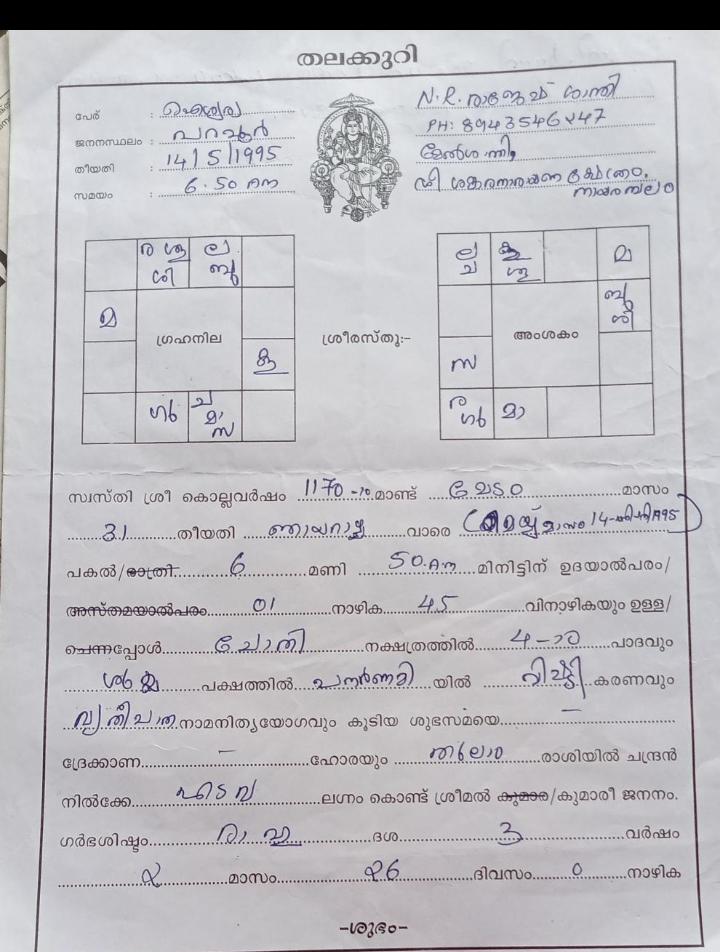 തലക്കുറി
പേര് : ഐശ്വര്യ
ജനനസ്ഥലം : പറവൂർ
തീയതി : 14/5/1995
സമയം : 6.50 AM
N.R. രാജേഷ് ശാന്തി
PH: 8943546247
മേൽശാന്തി,
ശ്രീ ശങ്കരനാരായണ ക്ഷേത്രം,
നായരമ്പലം
ര ശു ല
ശി ബു
മ
ഗ്രഹനില
കു
ഗു ച
മാ
സ
ശ്രീരസ്തു:-
ല കു മ
ച ശു
ബു
ശി
അംശകം
സ
ര മാ
ഗു
സ്വസ്തി ശ്രീ കൊല്ലവർഷം 1170-ാം മാണ്ട് മേടം മാസം
31 തീയതി ഞായറാഴ്ച വാരെ
പകൽ/രാത്രി 6 മണി 50 AM മിനിട്ടിന് ഉദയാൽപരം/
അസ്തമയാൽപരം 01 നാഴിക 45 വിനാഴികയും ഉള്ള/
ചെന്നപ്പോൾ ചോതി നക്ഷത്രത്തിൽ 4-ാം പാദവും
പക്ഷത്തിൽ പൗർണമി യിൽ വിഷ്ടി കരണവും
വ്യതീപാത നാമനിത്യയോഗവും കൂടിയ ശുഭസമയെ –
ദ്രേക്കാണ – ഹോരയും തുലാം രാശിയിൽ ചന്ദ്രൻ
നിൽക്കേ ഇടവ ലഗ്നം കൊണ്ട് ശ്രീമൽ കുമാര/കുമാരീ ജനനം.
ഗർഭശിഷ്ടം രാഹു ദശ 3 വർഷം
2 മാസം 26 ദിവസം 0 നാഴിക
-ശുഭം-